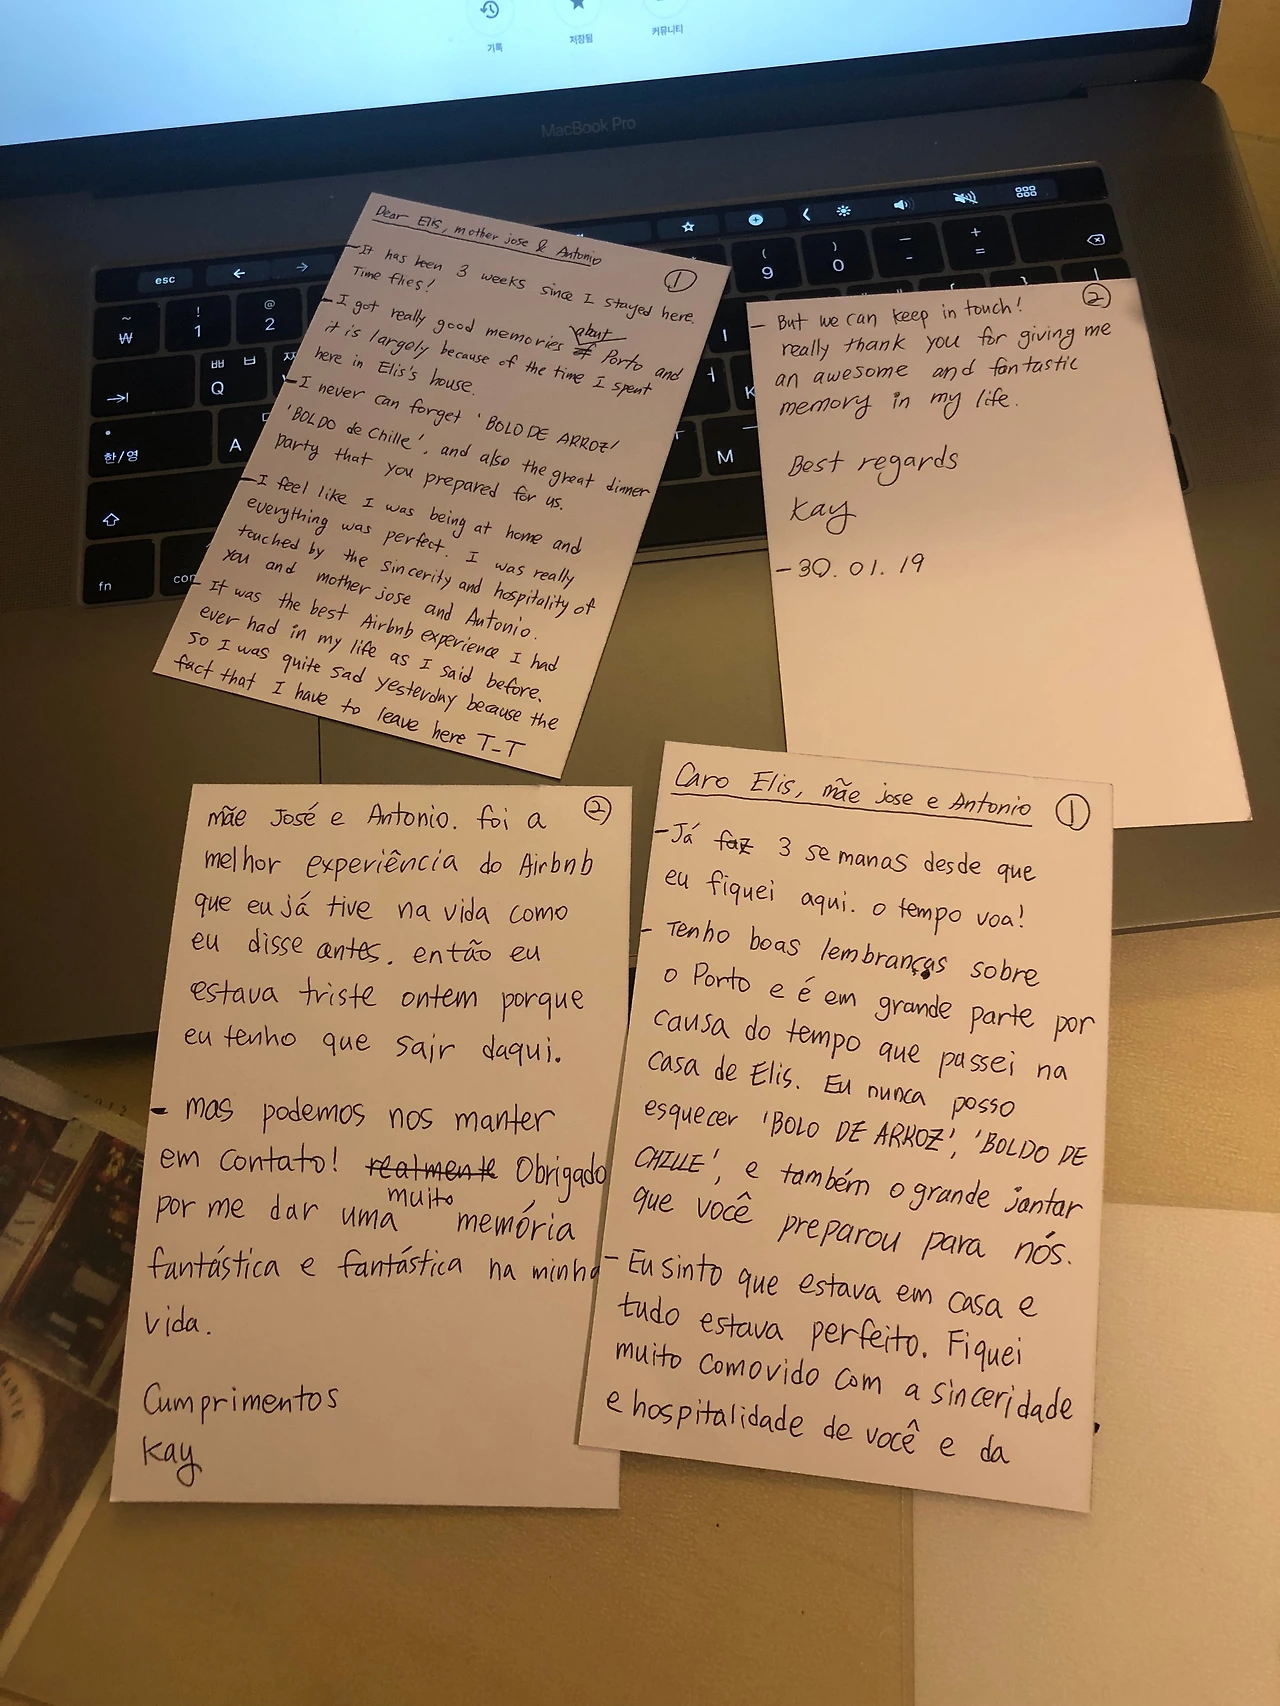 기록
저장됨
커뮤니티
MacBook Pro
esc
~
₩
!
1
@
2
(
9
)
0
—
-
+
=
ㅃ ㅂ
Q
한/영
A
M
fn
Dear Elis, mother jose & Antonio
①
- It has been 3 weeks since I stayed here.
Time flies!
- I got really good memories about Porto and
it is largely because of the time I spent
here in Elis's house.
- I never can forget 'BOLO DE ARROZ'
'BOLDO de Chille', and also the great dinner
party that you prepared for us.
- I feel like I was being at home and
everything was perfect. I was really
touched by the sincerity and hospitality of
you and mother jose and Antonio.
- It was the best Airbnb experience I had
ever had in my life as I said before.
So I was quite sad yesterday because the
fact that I have to leave here T_T
②
- But we can keep in touch!
really thank you for giving me
an awesome and fantastic
memory in my life.
Best regards
Kay
- 30. 01. 19
Caro Elis, mãe jose e Antonio ①
- Já faz 3 semanas desde que
eu fiquei aqui. o tempo voa!
- Tenho boas lembranças sobre
o Porto e é em grande parte por
causa do tempo que passei na
casa de Elis. Eu nunca posso
esquecer 'BOLO DE ARROZ', 'BOLDO DE
CHILLE', e também o grande jantar
que você preparou para nós.
- Eu sinto que estava em casa e
tudo estava perfeito. Fiquei
muito comovido com a sinceridade
e hospitalidade de você e da
mãe José e Antonio. foi a ②
melhor experiência do Airbnb
que eu já tive na vida como
eu disse antes. então eu
estava triste ontem porque
eu tenho que sair daqui.
- mas podemos nos manter
em contato! realmente Obrigado
por me dar uma muito memória
fantástica e fantástica na minha
vida.
Cumprimentos
Kay